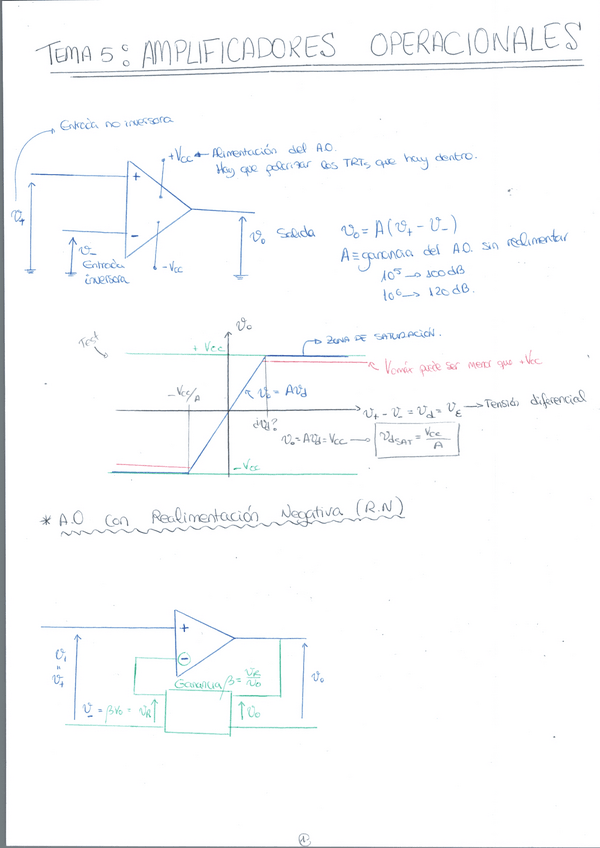 TEMA 5: AMPLIFICADORES OPERACIONALES
Entrada no inversora
+Vcc ← Alimentación del A.O.
Hay que polarizar los TRTs que hay dentro.
+
v+
-
v-
Entrada
inversora
-Vcc
vo Salida
vo = A(v+ - v-)
A ≡ ganancia del A.O. sin realimentar
10⁵ → 100 dB
10⁶ → 120 dB.
vo
Test
+Vcc
→ ZONA DE SATURACIÓN.
Vomáx puede ser menor que +Vcc
-Vcc/A
vo = Avd
v+ - v- = vd = vε → Tensión diferencial
¿vd?
vo = Avd = Vcc → vdSAT = Vcc/A
-Vcc
* A.O con Realimentación Negativa (R.N)
+
vi
=
v+
-
Ganancia β = vR/vo
vo
v- = βvo = vR
vo
1